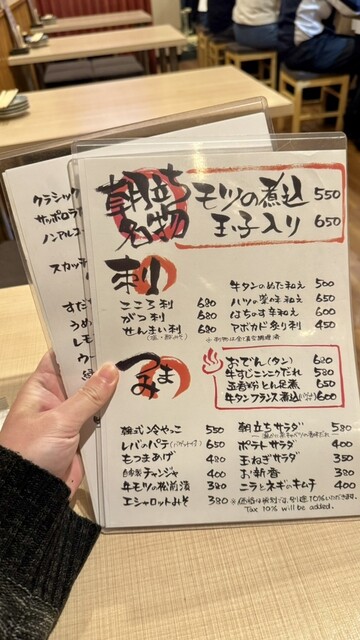 朝立ち
名物
モツの煮込 550
玉子入り 650
刺
こころ刺 680
がつ刺 680
せんまい刺 680
牛タンのぬた和え 500
ハツの菜味和え 650
はちのす辛和え 600
アボカド祭り刺 450
つまみ
おでん(タン) 680
牛すじニンニクだれ 580
玉春砂とん足煮 650
牛タンフランス煮込 600
韓式冷やっこ 550
レバのパテ(バゲット付) 650
もつまあげ 480
自家製チャンジャ 400
牛モツの松前漬 480
エシャロットみそ 380
朝立ちサラダ 580
ポテトサラダ 400
玉ねぎサラダ 350
お新香 380
ニラとネギのキムチ 400
※価格は税別です。別途10%いただきます。
Tax 10% will be added.
クラシック
サッポロラ
ノンアル
スカッ
すだ
うめ
レモ
ウー